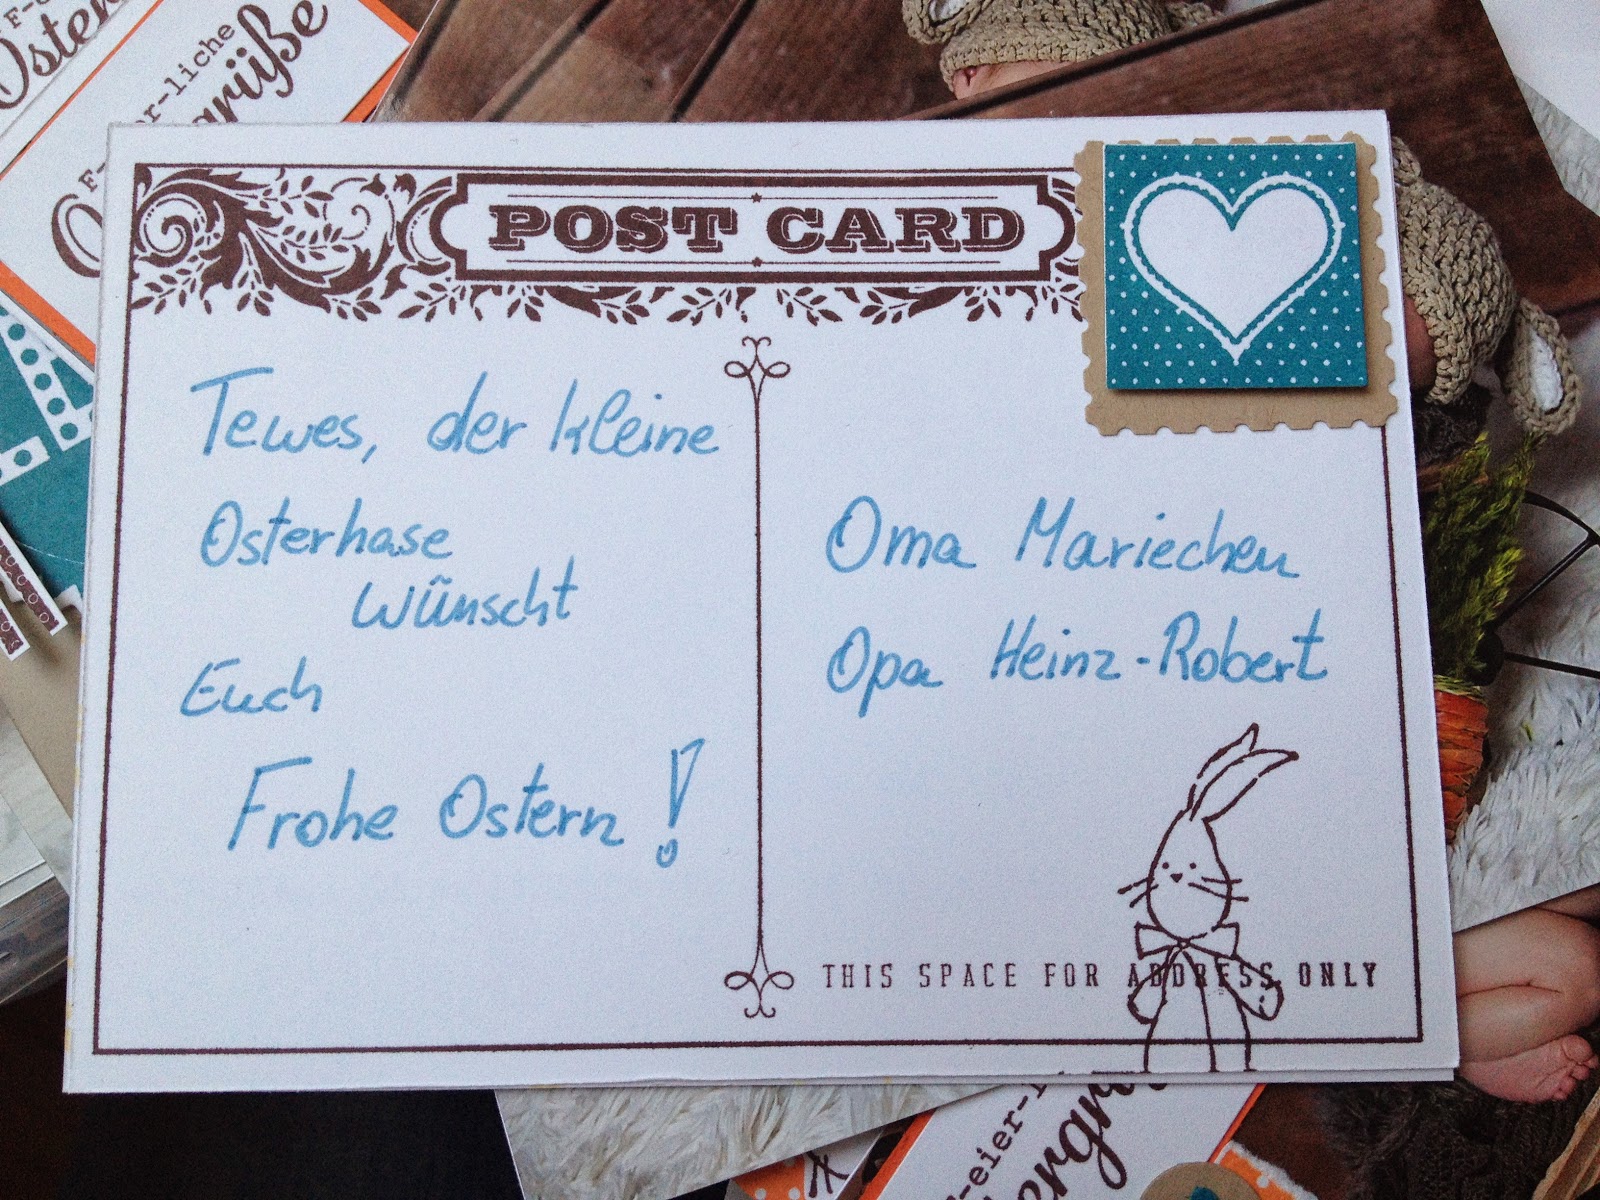 F-e
Osten
F-eier-liche
grüße
POST CARD
Tewes, der kleine
Osterhase
wünscht
Euch
Frohe Ostern!
Oma Mariechen
Opa Heinz-Robert
THIS SPACE FOR ADDRESS ONLY